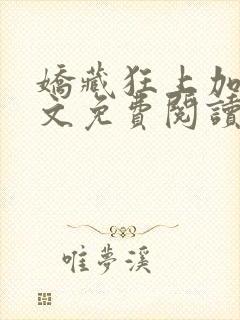 嬌藏狂上加
文免費閱讀
唯夢溪